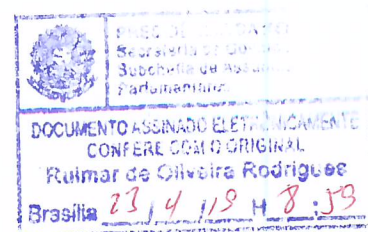 Secretaria de
Subchefia de
Parlamentares
DOCUMENTO ASSINADO ELETRONICAMENTE
CONFERE COM O ORIGINAL
Ruimar de Oliveira Rodrigues
Brasília 23/4/19 H 8:59